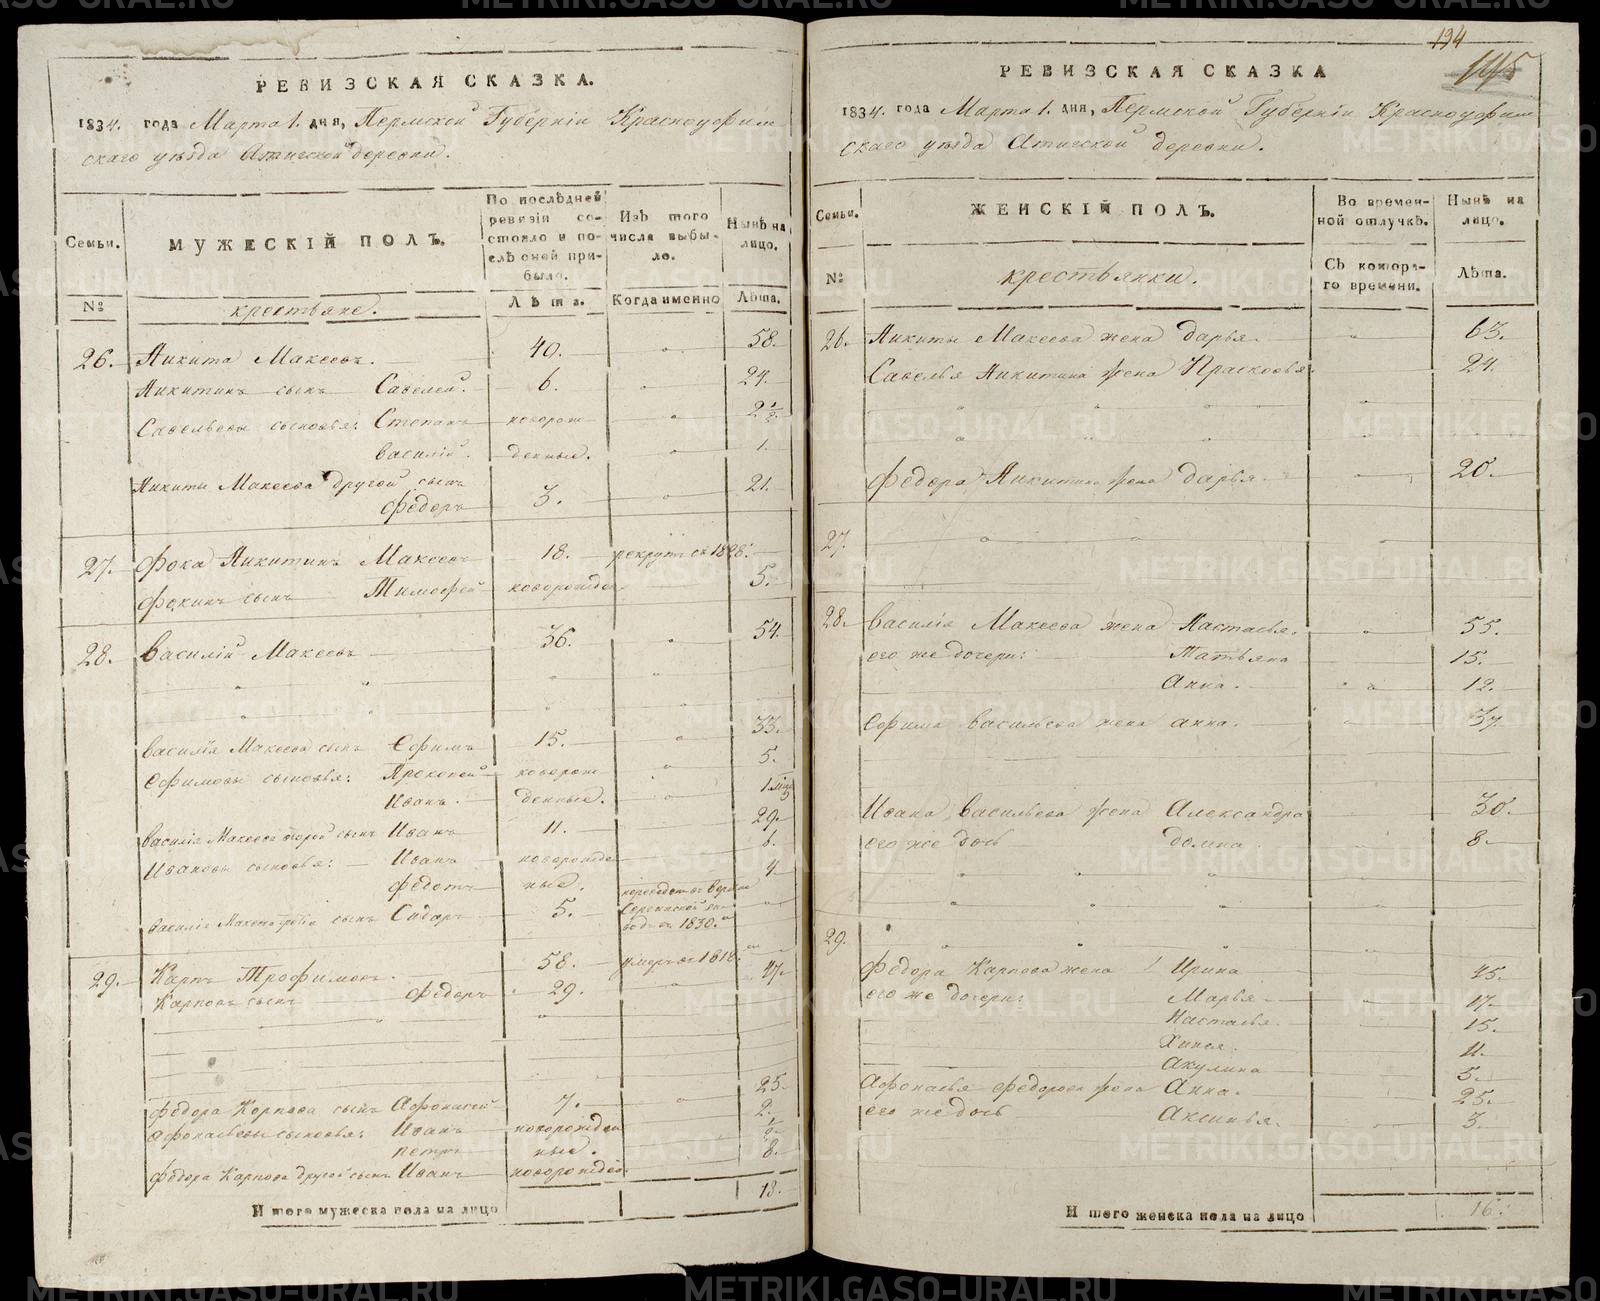 РЕВИЗСКАЯ СКАЗКА.
1834. года Марта 1. дня, Пермской Губерніи Красноуфим
скаго уѣзда Атигской деревни.
Семьи.
№
МУЖЕСКІЙ ПОЛЪ.
крестьяне.
По послѣдней ревизіи состояло и послѣ оной прибыло.
Лѣта.
Изъ того числа выбыло.
Когда именно
Нынѣ на лицо.
Лѣта.
26. Никита Макеевъ. 40. " 58.
Никитинъ сынъ Савелей. 6. " 24.
Савельевы сыновья: Степанъ новорож " 2 1/2.
Василій. денные. " 1.
Никиты Макеева другой сынъ
Федоръ 3. " 21.
27. Фока Никитинъ Макеевъ 18. рекрутъ съ 1828.
Фокинъ сынъ Тимофей новорожден 5.
28. Василій Макеевъ 36. " 54.
Василія Макеева сынъ Ефимъ 15. " 33.
Ефимовы сыновья: Прокопей новорож " 5.
Иванъ. денные. "
Василія Макеева второй сынъ Иванъ 11. 29.
Ивановы сыновья: Иванъ новорожде 6.
Федотъ ные. 4.
Василія Макеева третій сынъ Сидоръ 5.
въ 1830.
29. Карпъ Трофимовъ. 58. умеръ въ 1818.
Карповъ сынъ Федоръ 29. " 47.
Федора Карпова сынъ Афонасей 7. " 25.
Афонасьевы сыновья: Иванъ новорожден 2.
Петръ ные. 1/2
Федора Карпова другой сынъ Иванъ новорожде. 8.
Итого мужеска пола на лицо 18.
194
145
РЕВИЗСКАЯ СКАЗКА
1834. года Марта 1. дня, Пермской Губерніи Красноуфим
скаго уѣзда Атигской деревни.
Семьи.
№
ЖЕНСКІЙ ПОЛЪ.
крестьянки.
Во временной отлучкѣ.
Съ котораго времени.
Нынѣ на лицо.
Лѣта.
26. Никиты Макеева жена Дарья. " 63.
Савелья Никитина жена Прасковья 24.
Федора Никитина жена Дарья. " 20.
27.
28. Василія Макеева жена Настасья. " 55.
его же дочери: Татьяна 15.
Анна. " 12.
Ефима Васильева жена Анна. " 37.
Ивана Васильева жена Александра 30.
его же дочь Домна 8.
29.
Федора Карпова жена Ирина 45.
его же дочери: Марья 17.
Настасья. 15.
11.
Акулина 5.
Афонасья Федорова жена Анна. 25.
его же дочь Аксинья. 3.
Итого женска пола на лицо 16.
METRIKI.GASO-URAL.RU